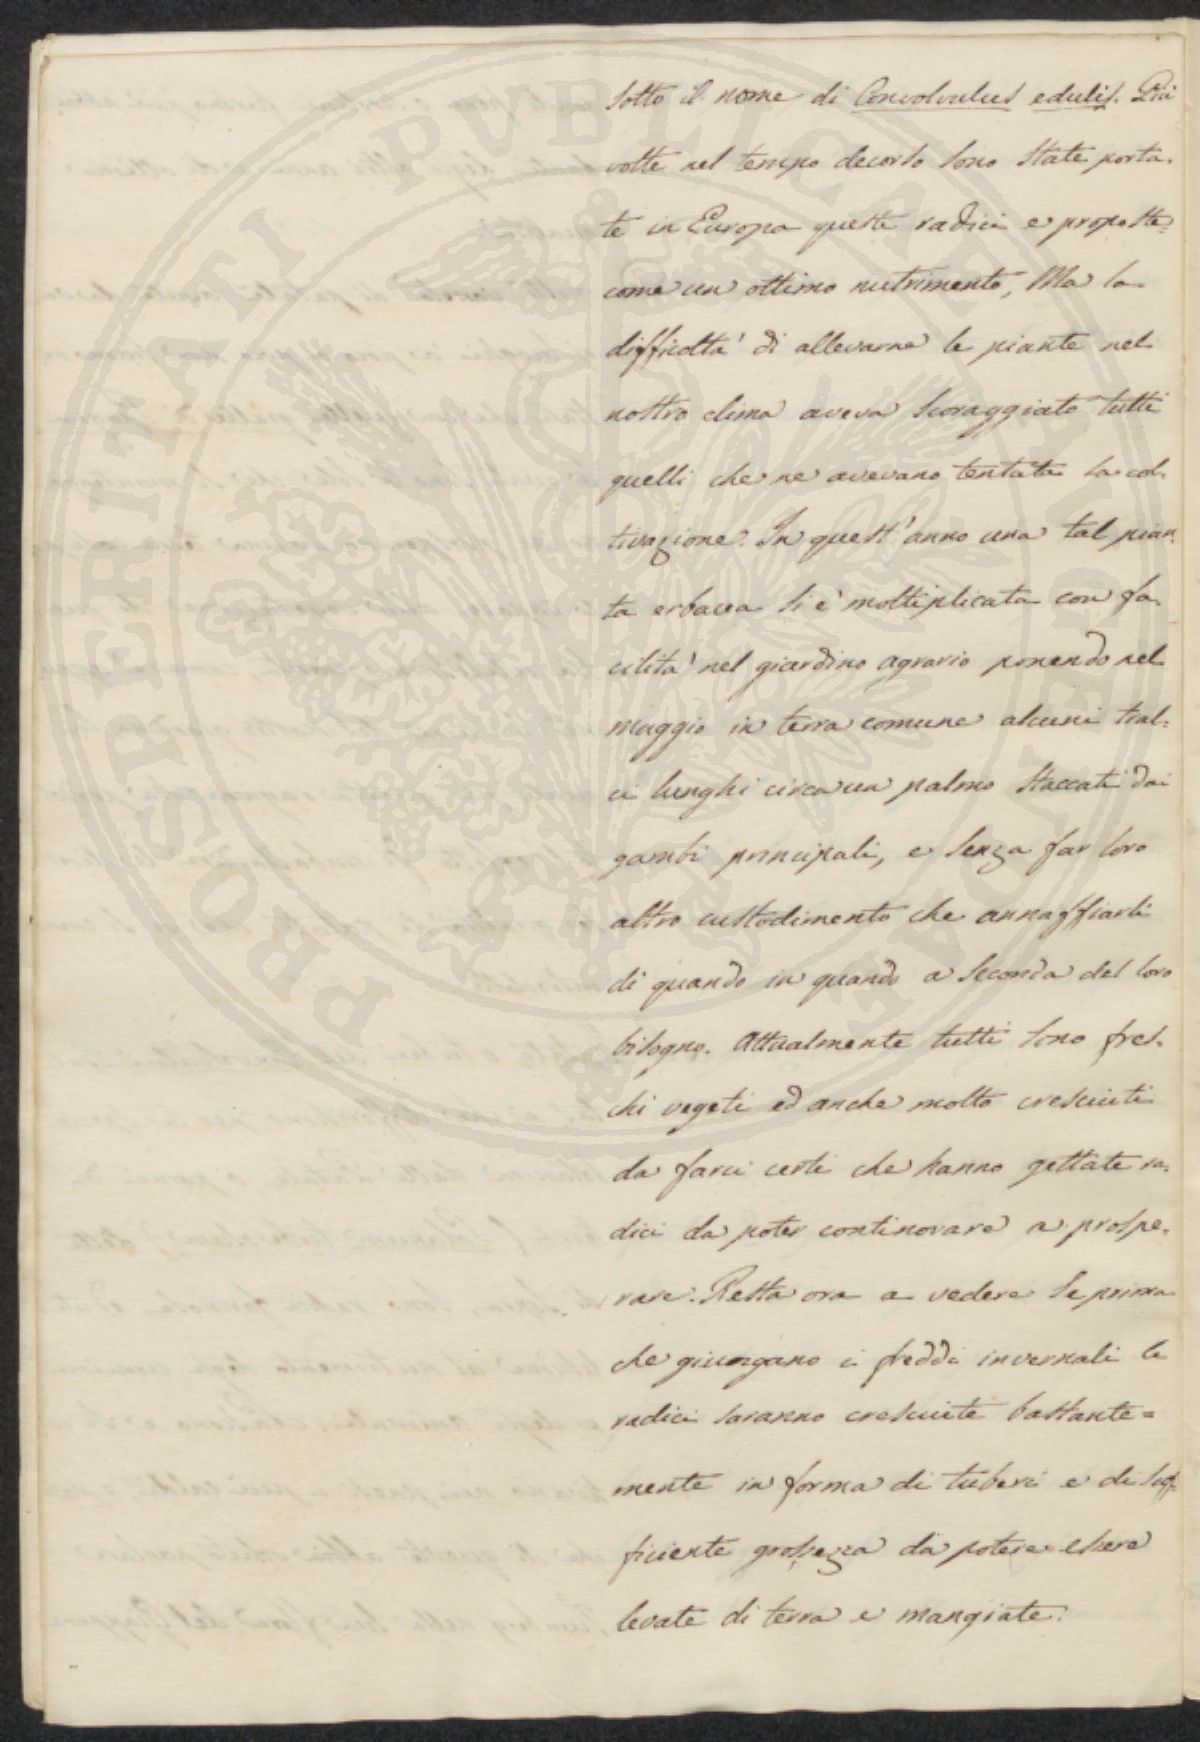 sotto il nome di Convolvulus edulis. Più
volte nel tempo decorso sono state porta-
te in Europa queste radici e proposte
come un ottimo nutrimento, Ma la
difficoltà di allevarne le piante nel
nostro clima aveva scoraggiato tutti
quelli che ne avevano tentata la col-
tivazione. In quest'anno una tal pian-
ta erbacea si è moltiplicata con fa-
cilità nel giardino agrario ponendo nel
maggio in terra comune alcuni tral-
ci lunghi circa un palmo staccati dai
gambi principali, e senza far loro
altro custodimento che annaffiarli
di quando in quando a seconda del loro
bisogno. Attualmente tutti sono fres-
chi vegeti ed anche molto cresciuti
da farci certi che hanno gettate ra-
dici da poter continovare a prospe-
rare. Resta ora a vedere se prima
che giungano i freddi invernali le
radici saranno cresciute bastante=
mente in forma di tuberi e di suf-
ficiente grossezza da potere essere
levate di terra e mangiate.
PROSPERITATI PUBLICAE AUGENDAE